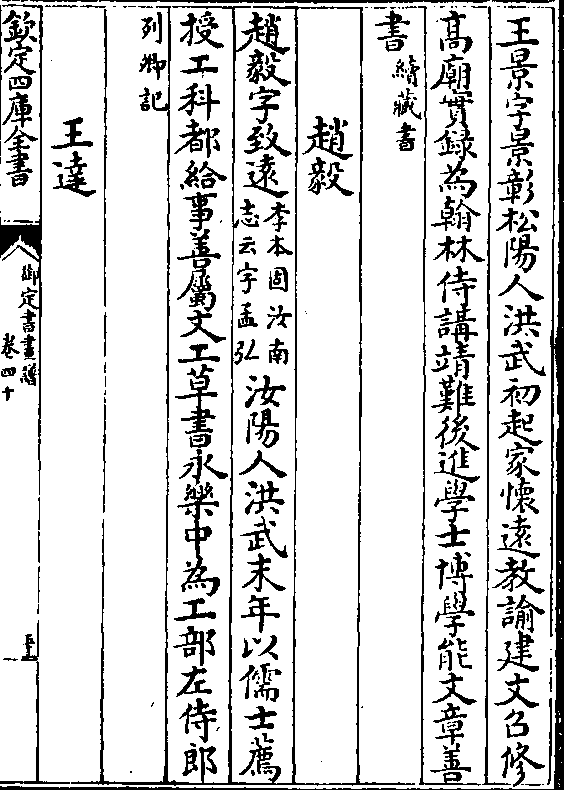 王景字景彰松陽人洪武初起家懷遠教諭建文召修
高廟實録為翰林侍講靖難後進學士博學能文章善
書續藏書
趙毅
趙毅字致遠李本固汝南志云字孟弘汝陽人洪武末年以儒士薦
授工科都給事善屬文工草書永樂中為工部左侍郎
列卿記
王達
欽定四庫全書
御定書畫譜
卷四十